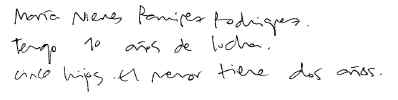 María Nieves Ramirez Rodriguez.
tengo 10 años de lucha.
cinco hijos. El menor tiene dos años.